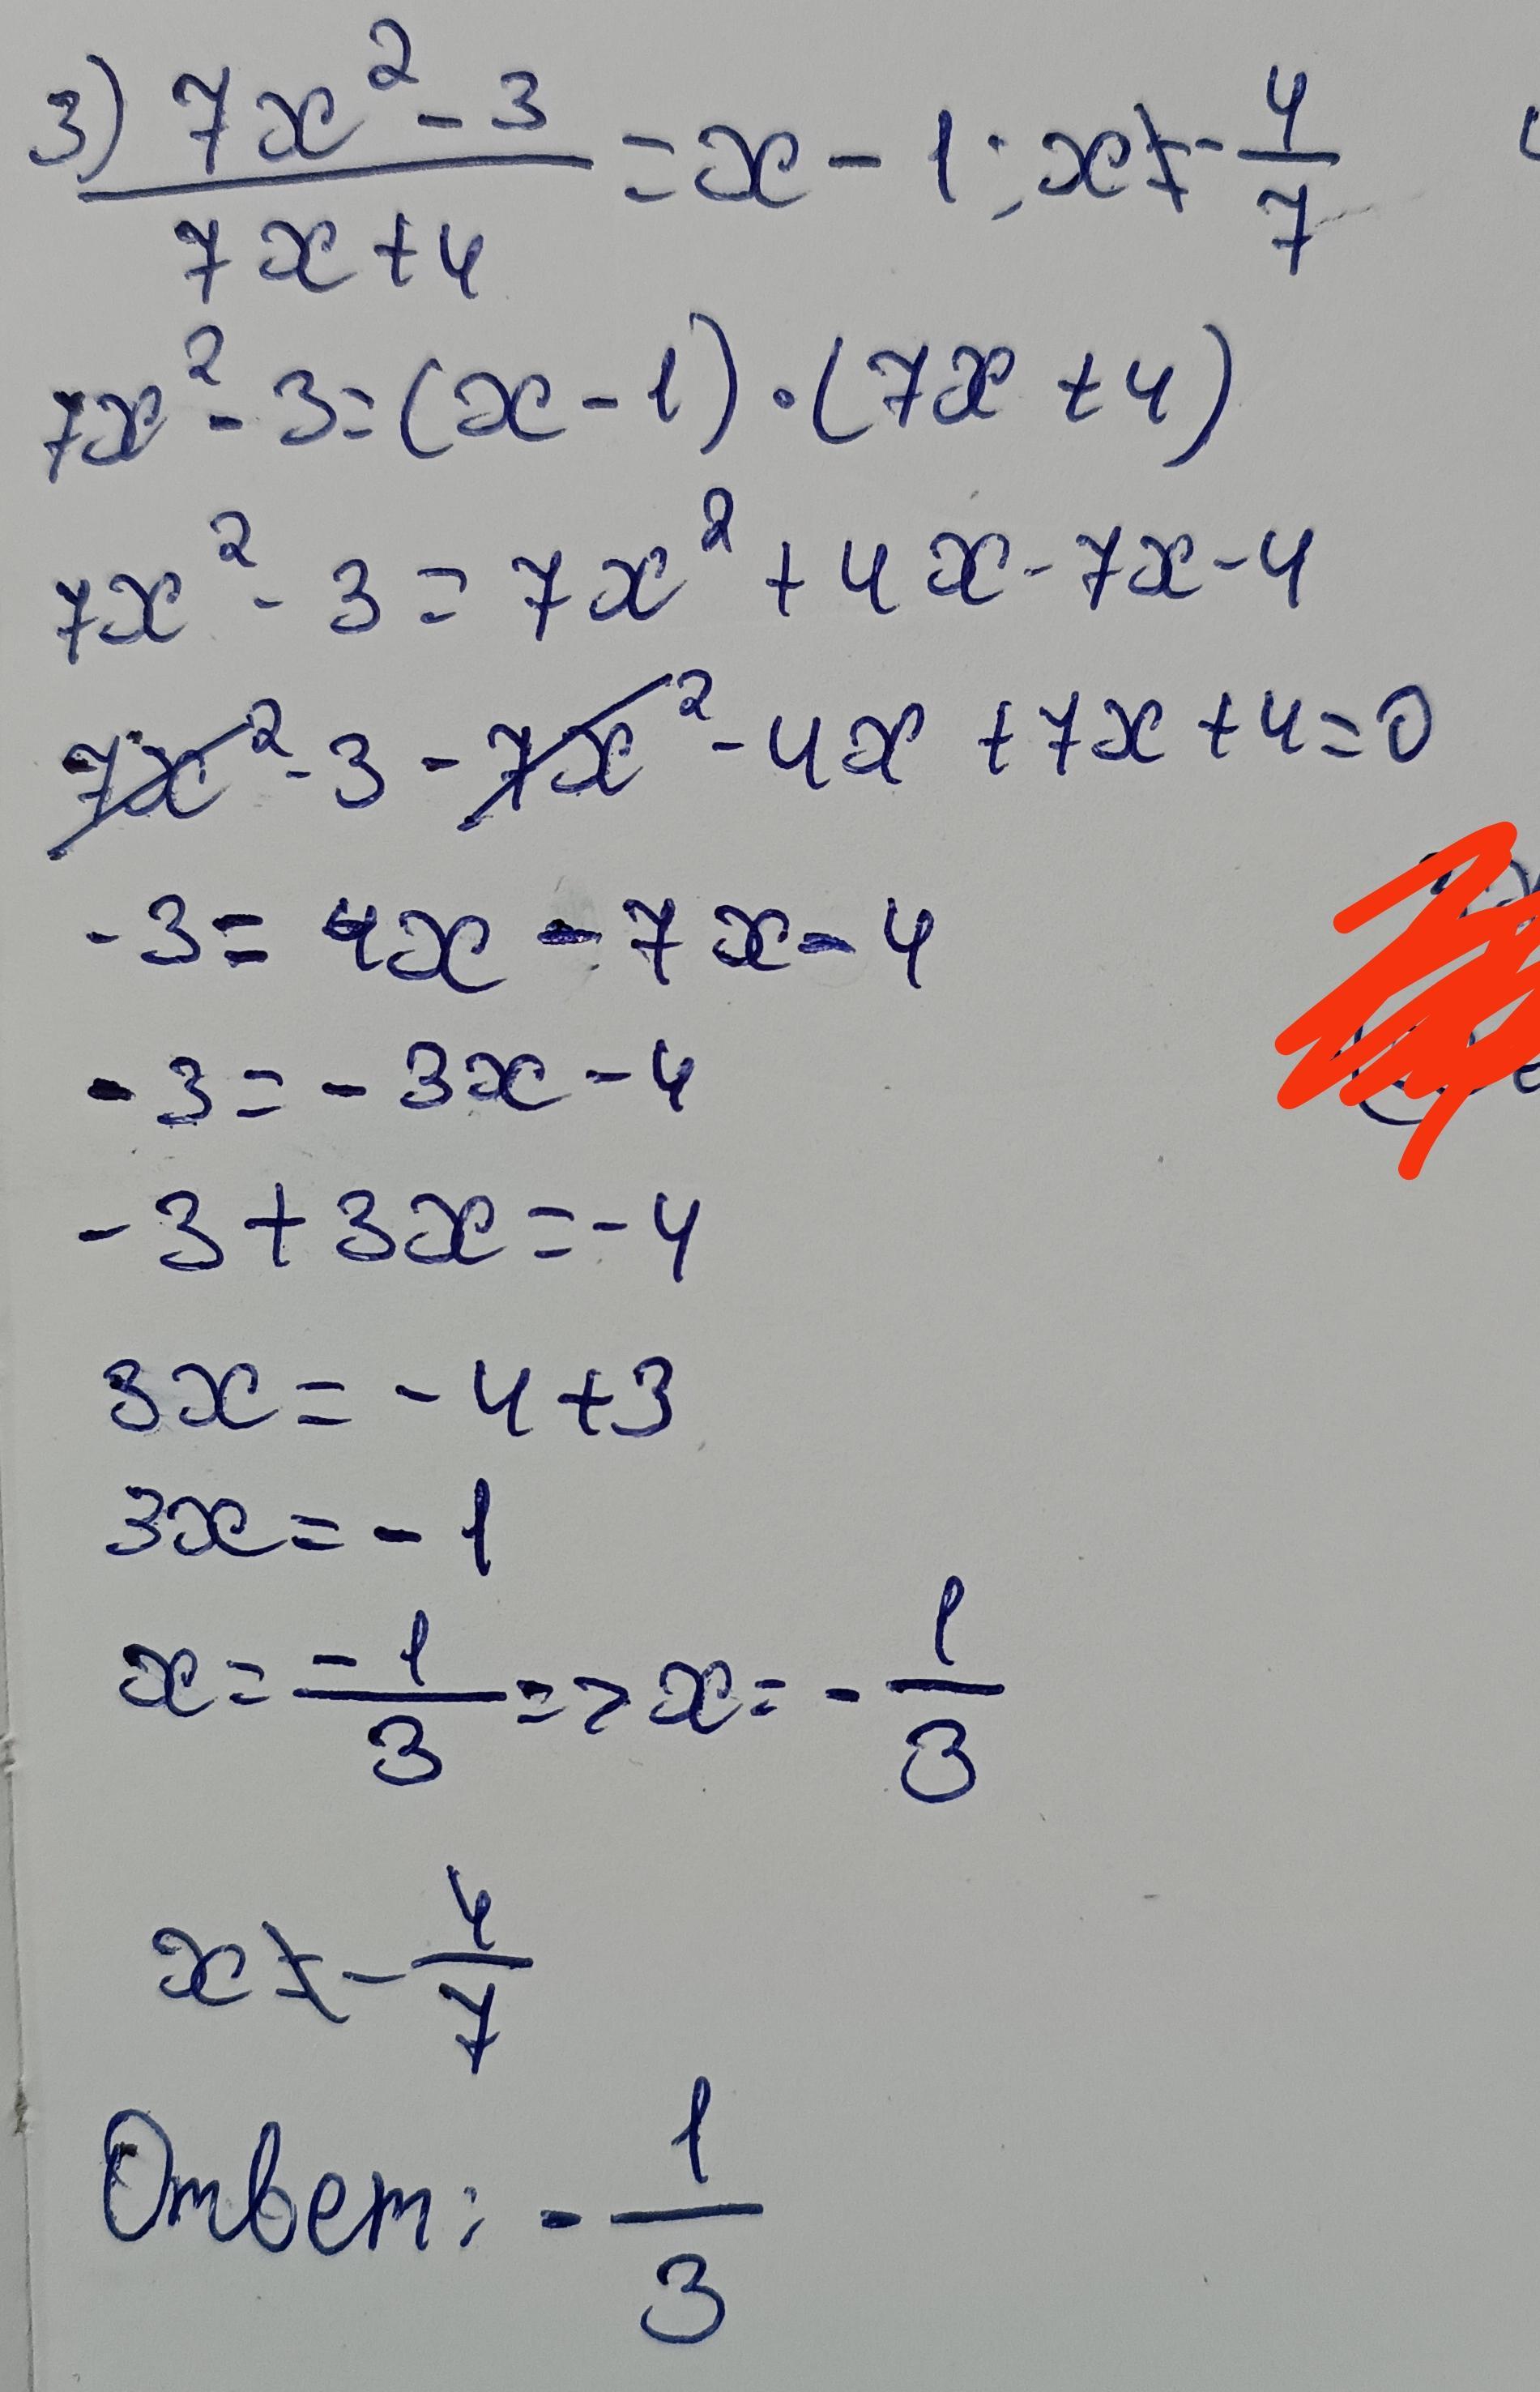 3) (7x² - 3)/(7x + 4) = x - 1; x ≠ - 4/7
7x² - 3 = (x - 1) · (7x + 4)
7x² - 3 = 7x² + 4x - 7x - 4
7x² - 3 - 7x² - 4x + 7x + 4 = 0
-3 = 4x - 7x - 4
-3 = -3x - 4
-3 + 3x = -4
3x = -4 + 3
3x = -1
x = -1/3 => x = - 1/3
x ≠ - 4/7
Ответ: - 1/3